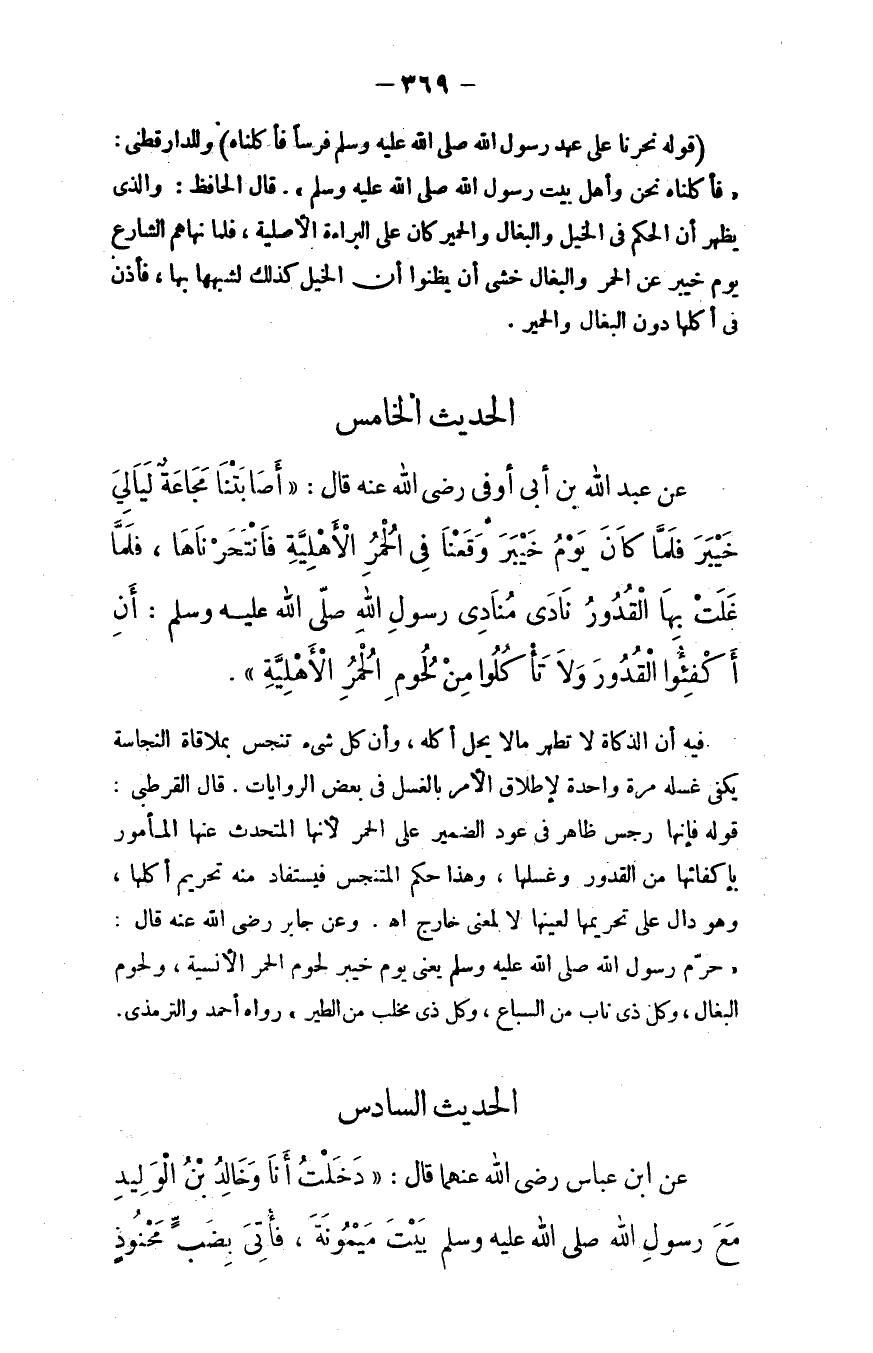 – ٣٦٩ –
(قوله نحرنا على عهد رسول الله صلى الله عليه وسلم فرساً فأكلناه) وللدارقطنى :
« فأكلناه نحن وأهل بيت رسول الله صلى الله عليه وسلم » . قال الحافظ : والذى
يظهر أن الحكم فى الخيل والبغال والحمير كان على البراءة الأصلية ، فلما نهاهم الشارع
يوم خيبر عن الحمر والبغال خشى أن يظنوا أن الخيل كذلك لشبهها بها ، فأذن
فى أكلها دون البغال والحمير .
الحديث الخامس
عن عبد الله بن أبى أوفى رضى الله عنه قال : « أَصَابَتْنَا مَجَاعَةٌ لَيَالِيَ
خَيْبَرَ فَلَمَّا كَانَ يَوْمُ خَيْبَرَ وَقَعْنَا فِى الْحُمُرِ الْأَهْلِيَّةِ فَانْتَحَرْنَاهَا ، فَلَمَّا
غَلَتْ بِهَا الْقُدُورُ نَادَى مُنَادِى رسولِ اللهِ صلّى الله عليه وسلم : أَنِ
أَكْفِئُوا الْقُدُورَ وَلَا تَأْكُلُوا مِنْ لُحُومِ الْحُمُرِ الْأَهْلِيَّةِ » .
فيه أن الذكاة لا تطهر مالا يحل أكله ، وأن كل شىء تنجس بملاقاة النجاسة
يكفى غسله مرة واحدة لإطلاق الأمر بالغسل فى بعض الروايات . قال القرطبى :
قوله فإنها رجس ظاهر فى عود الضمير على الحمر لأنها المتحدث عنها المأمور
بإكفائها من القدور وغسلها ، وهذا حكم المتنجس فيستفاد منه تحريم أكلها ،
وهو دال على تحريمها لعينها لا لمعنى خارج اه . وعن جابر رضى الله عنه قال :
« حرّم رسول الله صلى الله عليه وسلم يعنى يوم خيبر لحوم الحمر الأنسية ، ولحوم
البغال ، وكل ذى ناب من السباع ، وكل ذى مخلب من الطير » رواه أحمد والترمذى .
الحديث السادس
عن ابن عباس رضى الله عنهما قال : « دَخَلْتُ أَنَا وَخَالِدُ بْنُ الْوَلِيدِ
مَعَ رسولِ الله صلى الله عليه وسلم بَيْتَ مَيْمُونَةَ ، فَأُتِىَ بِضَبٍّ مَحْنُوذٍ